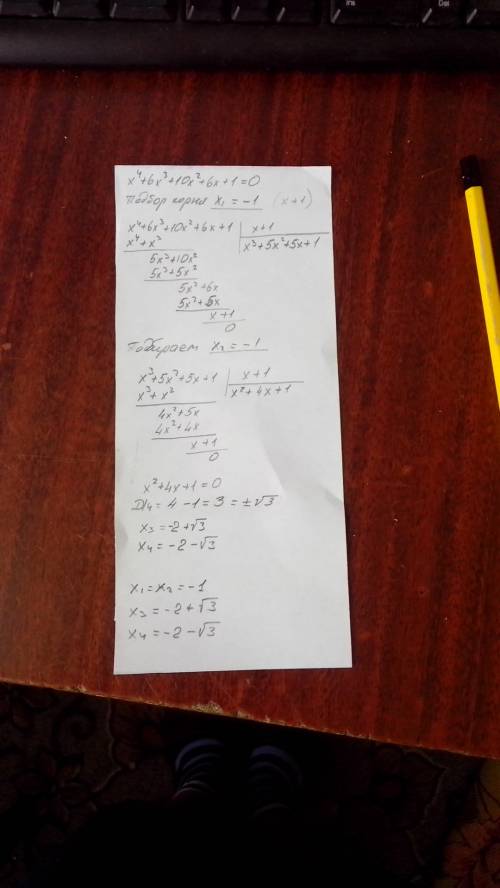 Ins
Del
x⁴+6x³+10x²+6x+1=0
Подбор корня x₁ = -1 (x+1)
x⁴+6x³+10x²+6x+1 | x+1
x⁴+x³ x³+5x²+5x+1
5x³+10x²
5x³+5x²
5x²+6x
5x²+5x
x+1
0
Подбираем x₂ = -1
x³+5x²+5x+1 | x+1
x³+x² x²+4x+1
4x²+5x
4x²+4x
x+1
0
x²+4x+1=0
Д/4= 4-1=3 =±√3
x₃ =-2+√3
x₄ =-2-√3
x₁=x₂=-1
x₃ =-2+√3
x₄ =-2-√3